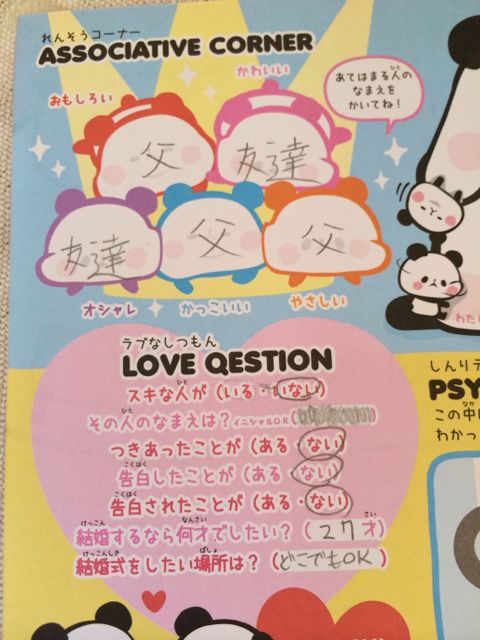 れんそうコーナー
ASSOCIATIVE CORNER
おもしろい
かわいい
あてはまる人の
なまえを
かいてね!
父
友達
友達
父
父
オシャレ
かっこいい
やさしい
わたし
ラブなしつもん
LOVE QESTION
スキな人が(いる・いない)
その人のなまえは?イニシャルOK( )
つきあったことが(ある・ない)
告白したことが(ある・ない)
告白されたことが(ある・ない)
結婚するなら何才でしたい?(27才)
結婚式をしたい場所は?(どこでもOK)
しんりテ
PSY
この中
わかっ